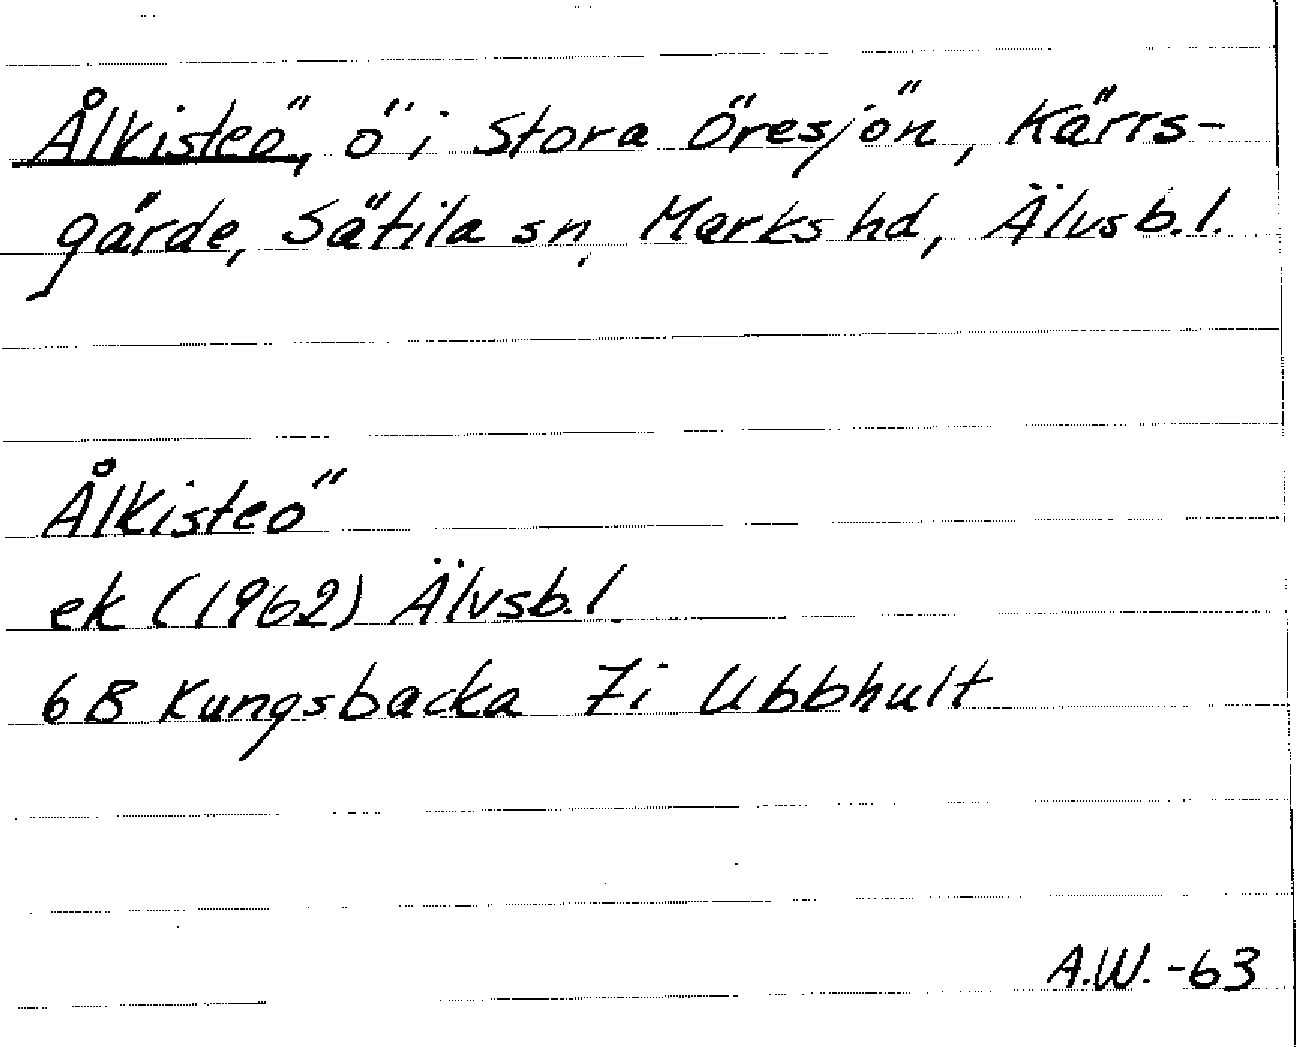 Ålkisteö, ö i Stora Öresjön, Kärrs-
gärde, Sätila sn, Marks hd, Älvsb.l.
Ålkisteö
ek (1962) Älvsb.l.
6B Kungsbacka 7i Ubbhult
A.W. -63